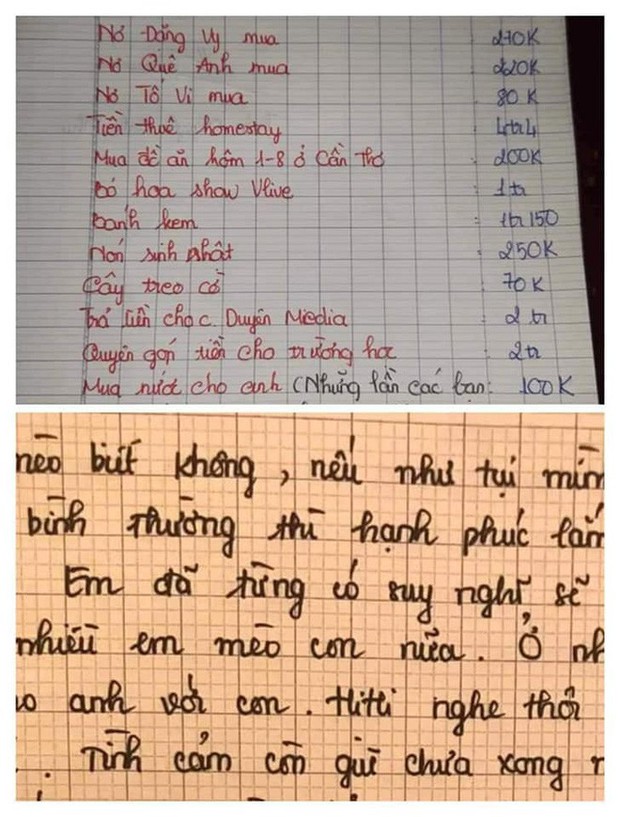 Nợ Đặng Vy mua : 270K
Nợ Quế Anh mua : 220K
Nợ Tô Vi mua : 80K
Tiền thuê homestay : 4tr4
Mua đồ ăn hôm 1-8 ở Cần Thơ : 200K
bó hoa show Vlive : 1tr
bánh kem : 1tr150
Nón sinh nhật : 250K
Cây treo cờ : 70K
Trả tiền cho c Duyên Media : 2tr
Quyên góp tiền cho trường học : 2tr
Mua nước cho anh (Những lần các bạn: 100K
mèo biết không, nếu như tụi mìn
bình thường thì hạnh phúc lắm
Em đã từng có suy nghĩ sẽ
nhiều em mèo con nữa. Ở nh
anh với con. Hihi nghe thôi
. Tình cảm còn gùi chưa xong